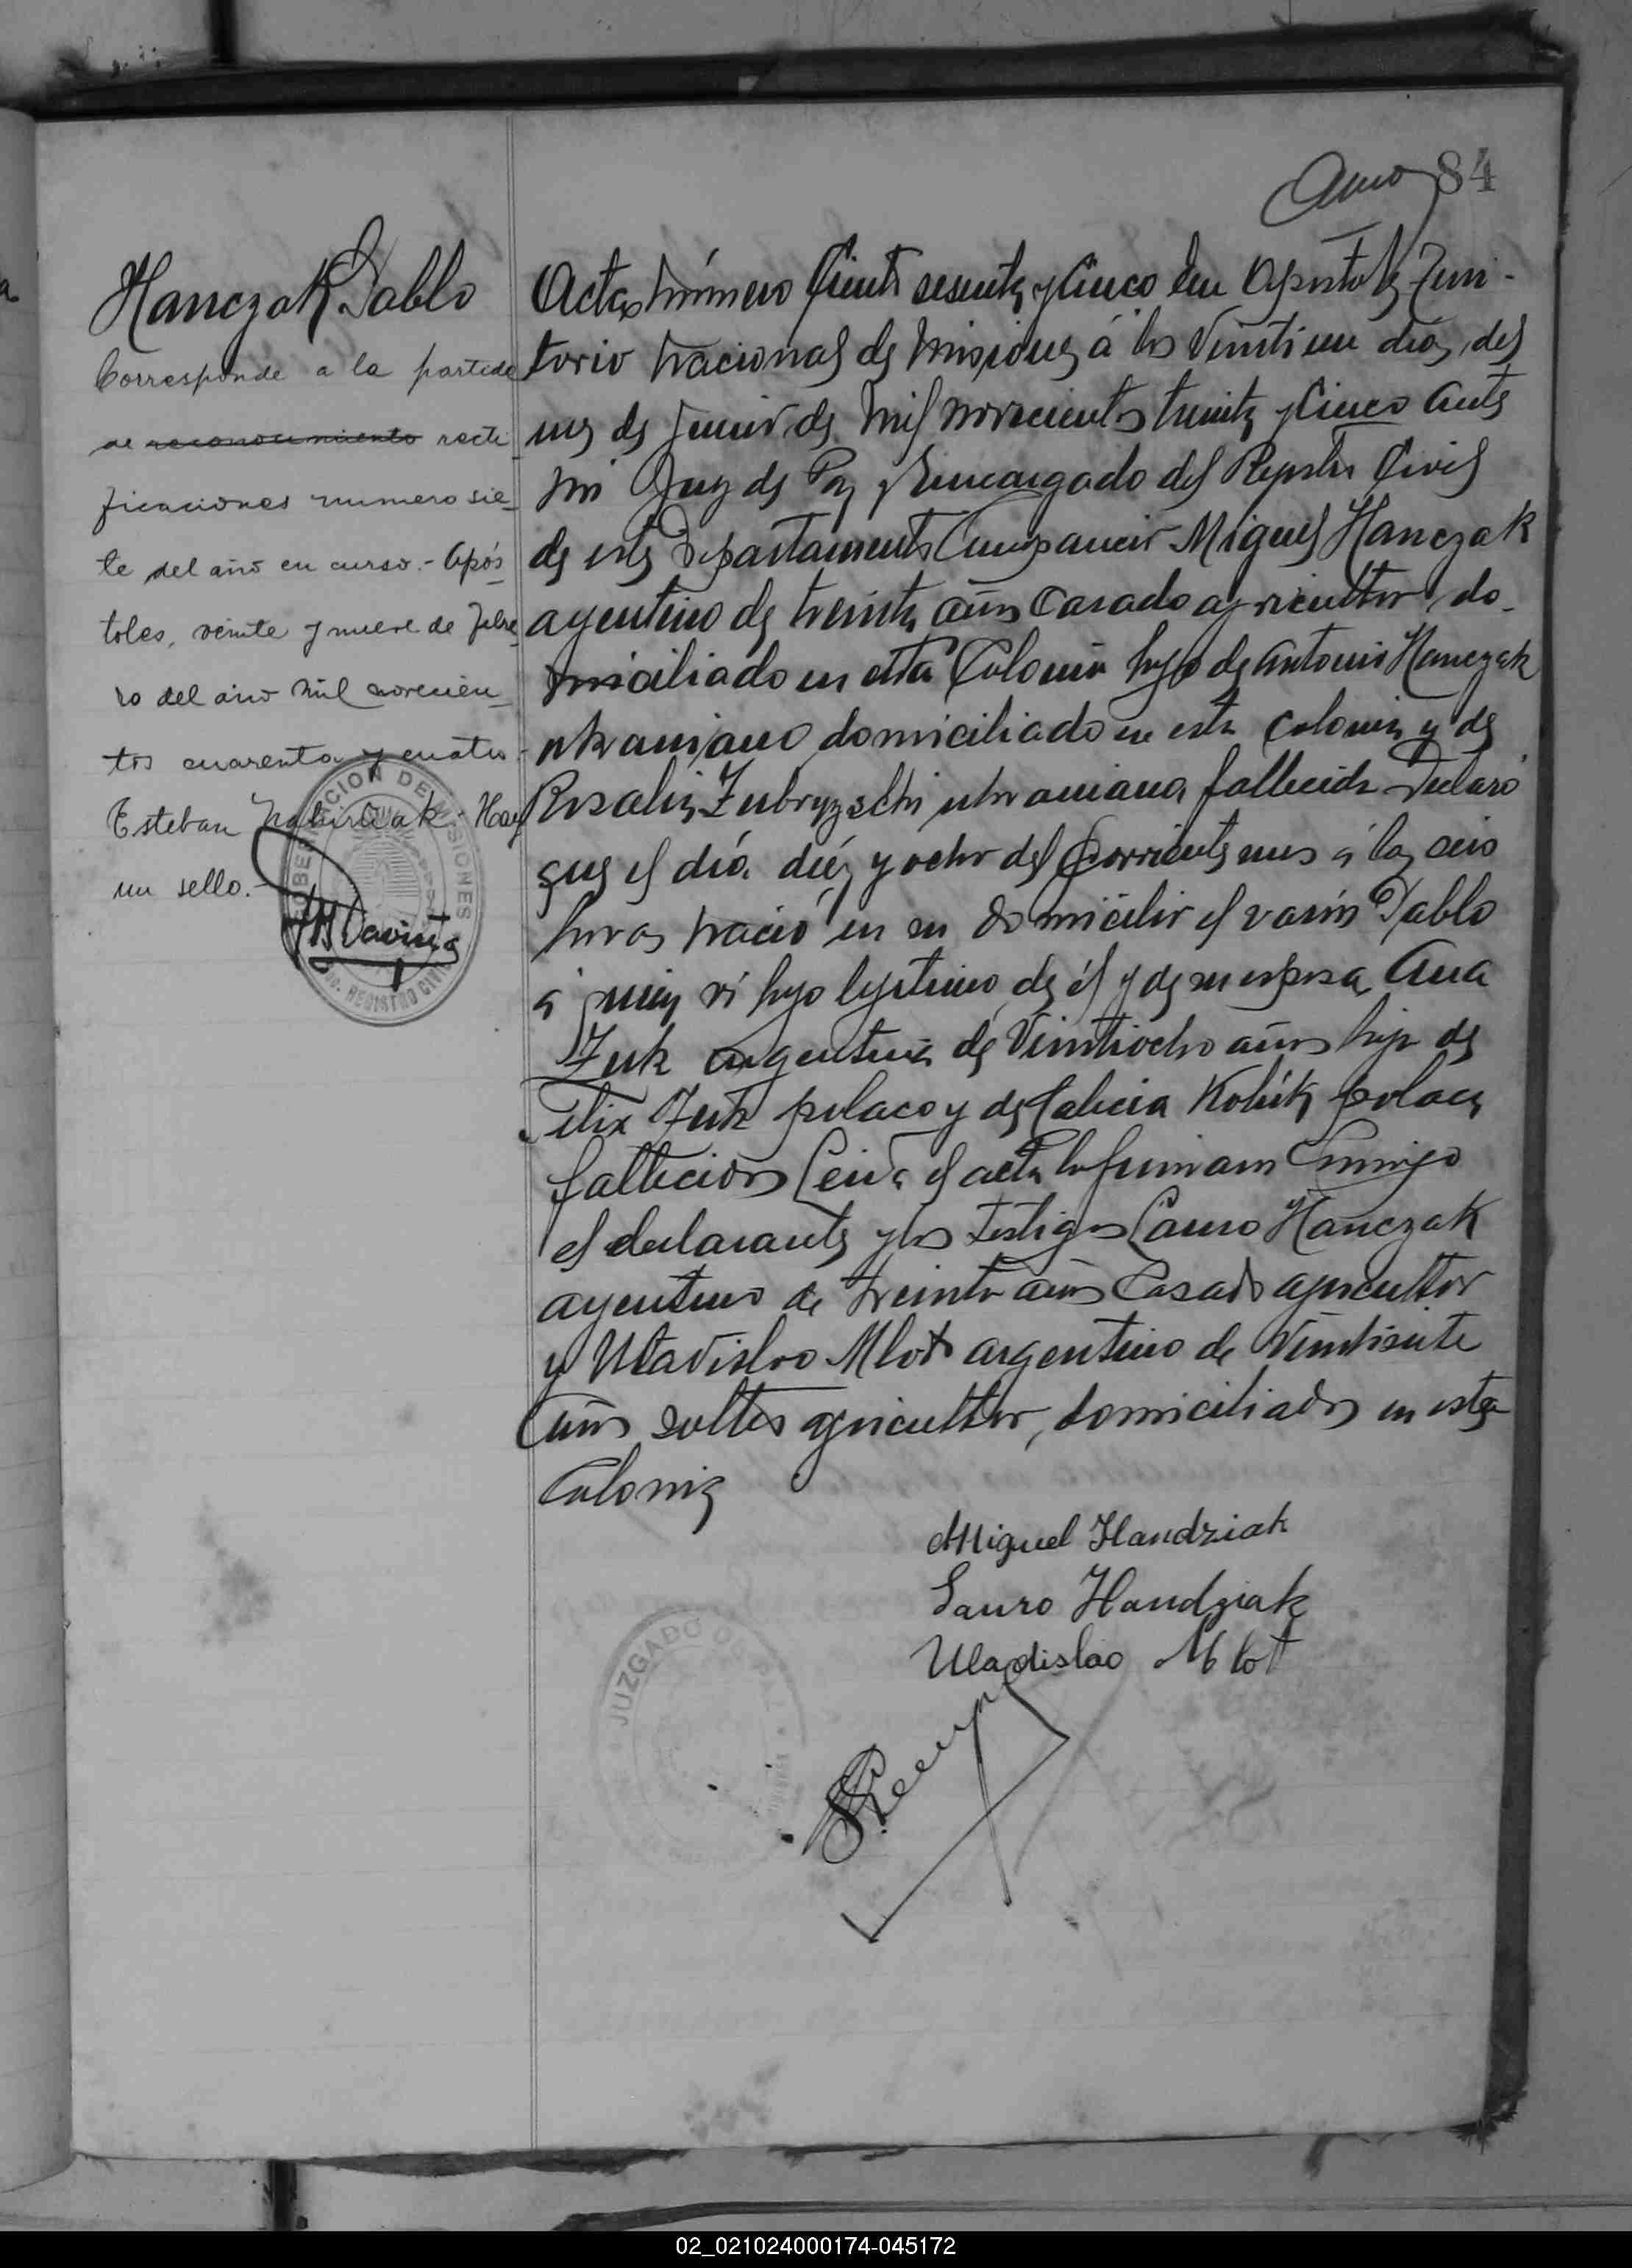 84
Hanczak Pablo
Corresponde a la partida
de reconocimiento recti
ficaciones numero sie_
te del año en curso.- Após_
toles, veinte y nueve de febre_
ro del año mil novecien_
tos cuarenta y cuatro.-
Esteban Hay
un sello.-
GOBERNACION DE MISIONES
REGISTRO CIVIL
Acta número Ciento sesenta y Cinco En Apostoles Terri-
torio Nacional de Misiones á los Veintiun días del
mes de Junio de Mil novecientos treinta y Cinco Ante
mi Juez de Paz y Encargado del Registro Civil
de este Departamento Compareció Miguel Hanczak
argentino de treinta años Casado agricultor do-
miciliado en esta Colonia hijo de Antonio Hanczak
ukraniano domiciliado en esta Colonia y de
Rosalia Zubryzschi ukraniana fallecida Declaró
que el día diez y ocho del Corriente mes á las seis
horas nació en su domicilio el varón Pablo
á quien vi hijo legitimo de él y de su esposa Ana
Zuk argentina de Veintiocho años hija de
Felix Zuk polaco y de Kobik polaca
fallecidos Leida el acta la firmaron Conmigo
el declarante y los testigos Lauro Hanczak
argentino de treinta años Casado agricultor
y Uladislao Mlot argentino de Veintisiete
años soltero agricultor, domiciliados en esta
Colonia
Miguel Handziak
Lauro Handziak
Uladislao Mlot
JUZGADO DE PAZ
02_021024000174-045172